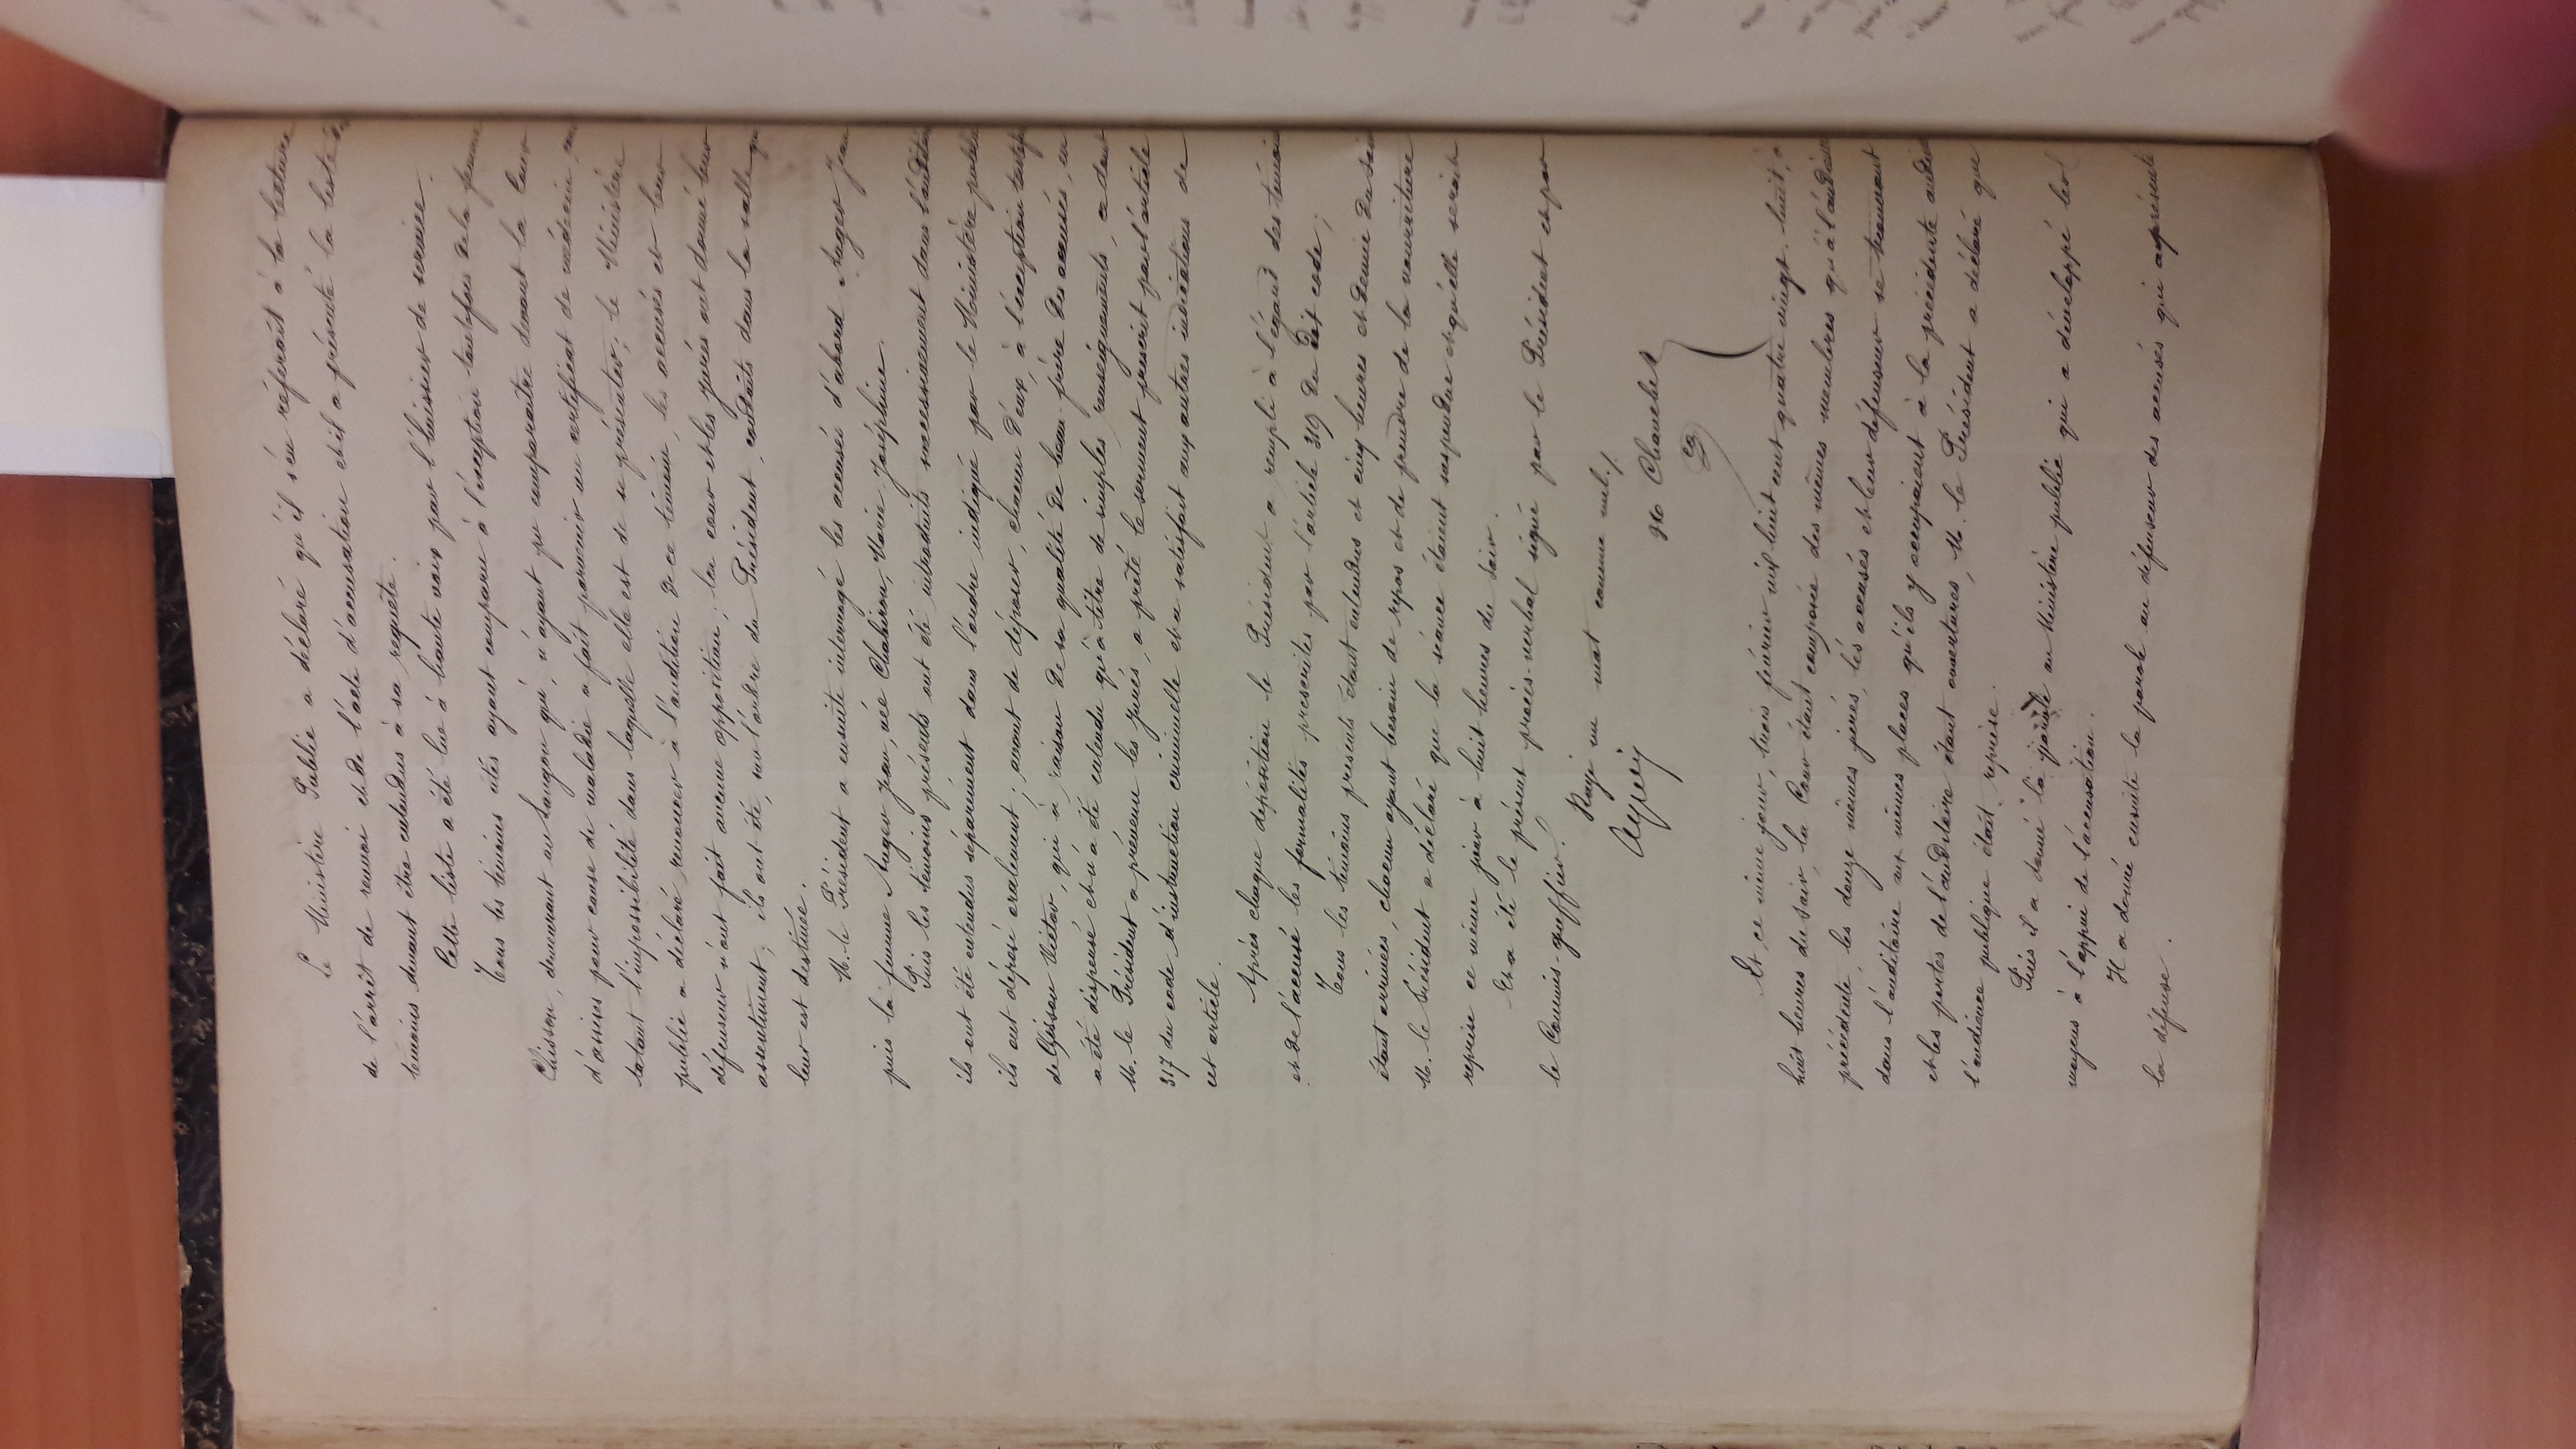 Le Ministère Public a déclaré qu'il s'en référait à la lecture
de l'arrêt de renvoi et de l'acte d'accusation et il a présenté la liste des
témoins devant être entendus à sa requête.
Cette liste a été lue à haute voix par l'huissier de service.
Tous les témoins cités ayant comparu à l'exception toutefois de la femme
Chisson, demeurant au Langon qui, n'ayant pu comparaître devant la Cour
d'assises pour cause de maladie a fait parvenir un certificat de médecin,
totant l'impossibilité dans laquelle elle est de se présenter; le Ministère
public a déclaré renoncer à l'audition de ce témoin, les accusés et leur
défenseur n'ont fait aucune opposition; la cour et les jurés ont donné leur
assentiment; ils ont été, sur l'ordre du Président, conduits dans la salle qui
leur est destinée.
M. le Président a ensuite interrogé les accusés d'abord Auger Jean
puis la femme Auger Jean, née Chabiron, Marie Joséphine.
Puis les témoins présents ont été introduits successivement dans l'auditoire
ils ont été entendus séparément dans l'ordre indiqué par le Ministère public
ils ont déposé oralement; avant de déposer, chacun d'eux, à l'exception toutefois
de Victor, qui à raison de sa qualité de beau-frère des accusés, en
a été dispensé et n'a été entendu qu'à titre de simples renseignements, ce dont
M. le Président a prévenu les jurés, a prêté le serment prescrit par l'article
317 du code d'instruction criminelle et a satisfait aux autres indications de
cet article.
Après chaque déposition le Président a rempli à l'égard des témoins
et de l'accusé les formalités prescrites par l'article 319 du dit code;
Tous les témoins présents étant entendus et cinq heures et demie du soir
étant arrivées, chacun ayant besoin de repos et de prendre de la nourriture
M. le Président a déclaré que la séance étaient suspendue et qu'elle serait
reprise ce même jour à huit heures du soir.
Et a été le présent procès-verbal signé par le Président et par
le Commis-greffier.
Rayé un mot comme nul./.
Et, ce même jour, trois février mil huit cent quatre vingt huit, à
huit heures du soir, la Cour étant composée des mêmes membres qu'à l'audience
précédente, les douze mêmes jurés, les accusés et leur défenseur se trouvant
dans l'auditoire aux mêmes places qu'ils y occupaient à la précédente audience
et les portes de l'auditoire étant ouvertures, M. le Président a déclaré que
l'audience publique était reprise.
Puis il a donné la parole au Ministère public qui a développé les
moyens à l'appui de l'accusation.
Il a donné ensuite la parole au défenseur des accusés qui a présenté
la défense.